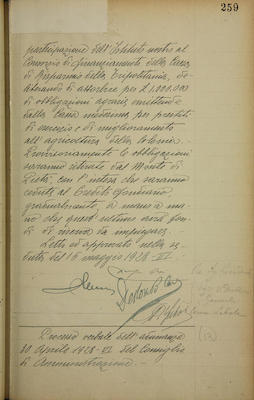 259
partecipazione dell'Istituto nostro al
Consorzio di finanziamento della Cassa
di Risparmio della Tripolitania, de-
liberando di assorbire per £ 1.000.000
di obbligazioni agrarie emittende
dalla Cassa medesima per prestiti
di esercizio e di miglioramento
all'agricoltura della Colonia.
Provvisoriamente le obbligazioni
saranno ritirate dal Monte di
Pietà, con l'intesa che saranno
cedute al Credito fondiario
gradualmente, a mano a ma-
no che quest'ultimo avrà fon-
di di riserva da impiegare.
Letto ed approvato nella se-
duta del 16 maggio 1928-VI.
Processo verbale dell'adunanza
30 Aprile 1928-VI del Consiglio
di Amministrazione.